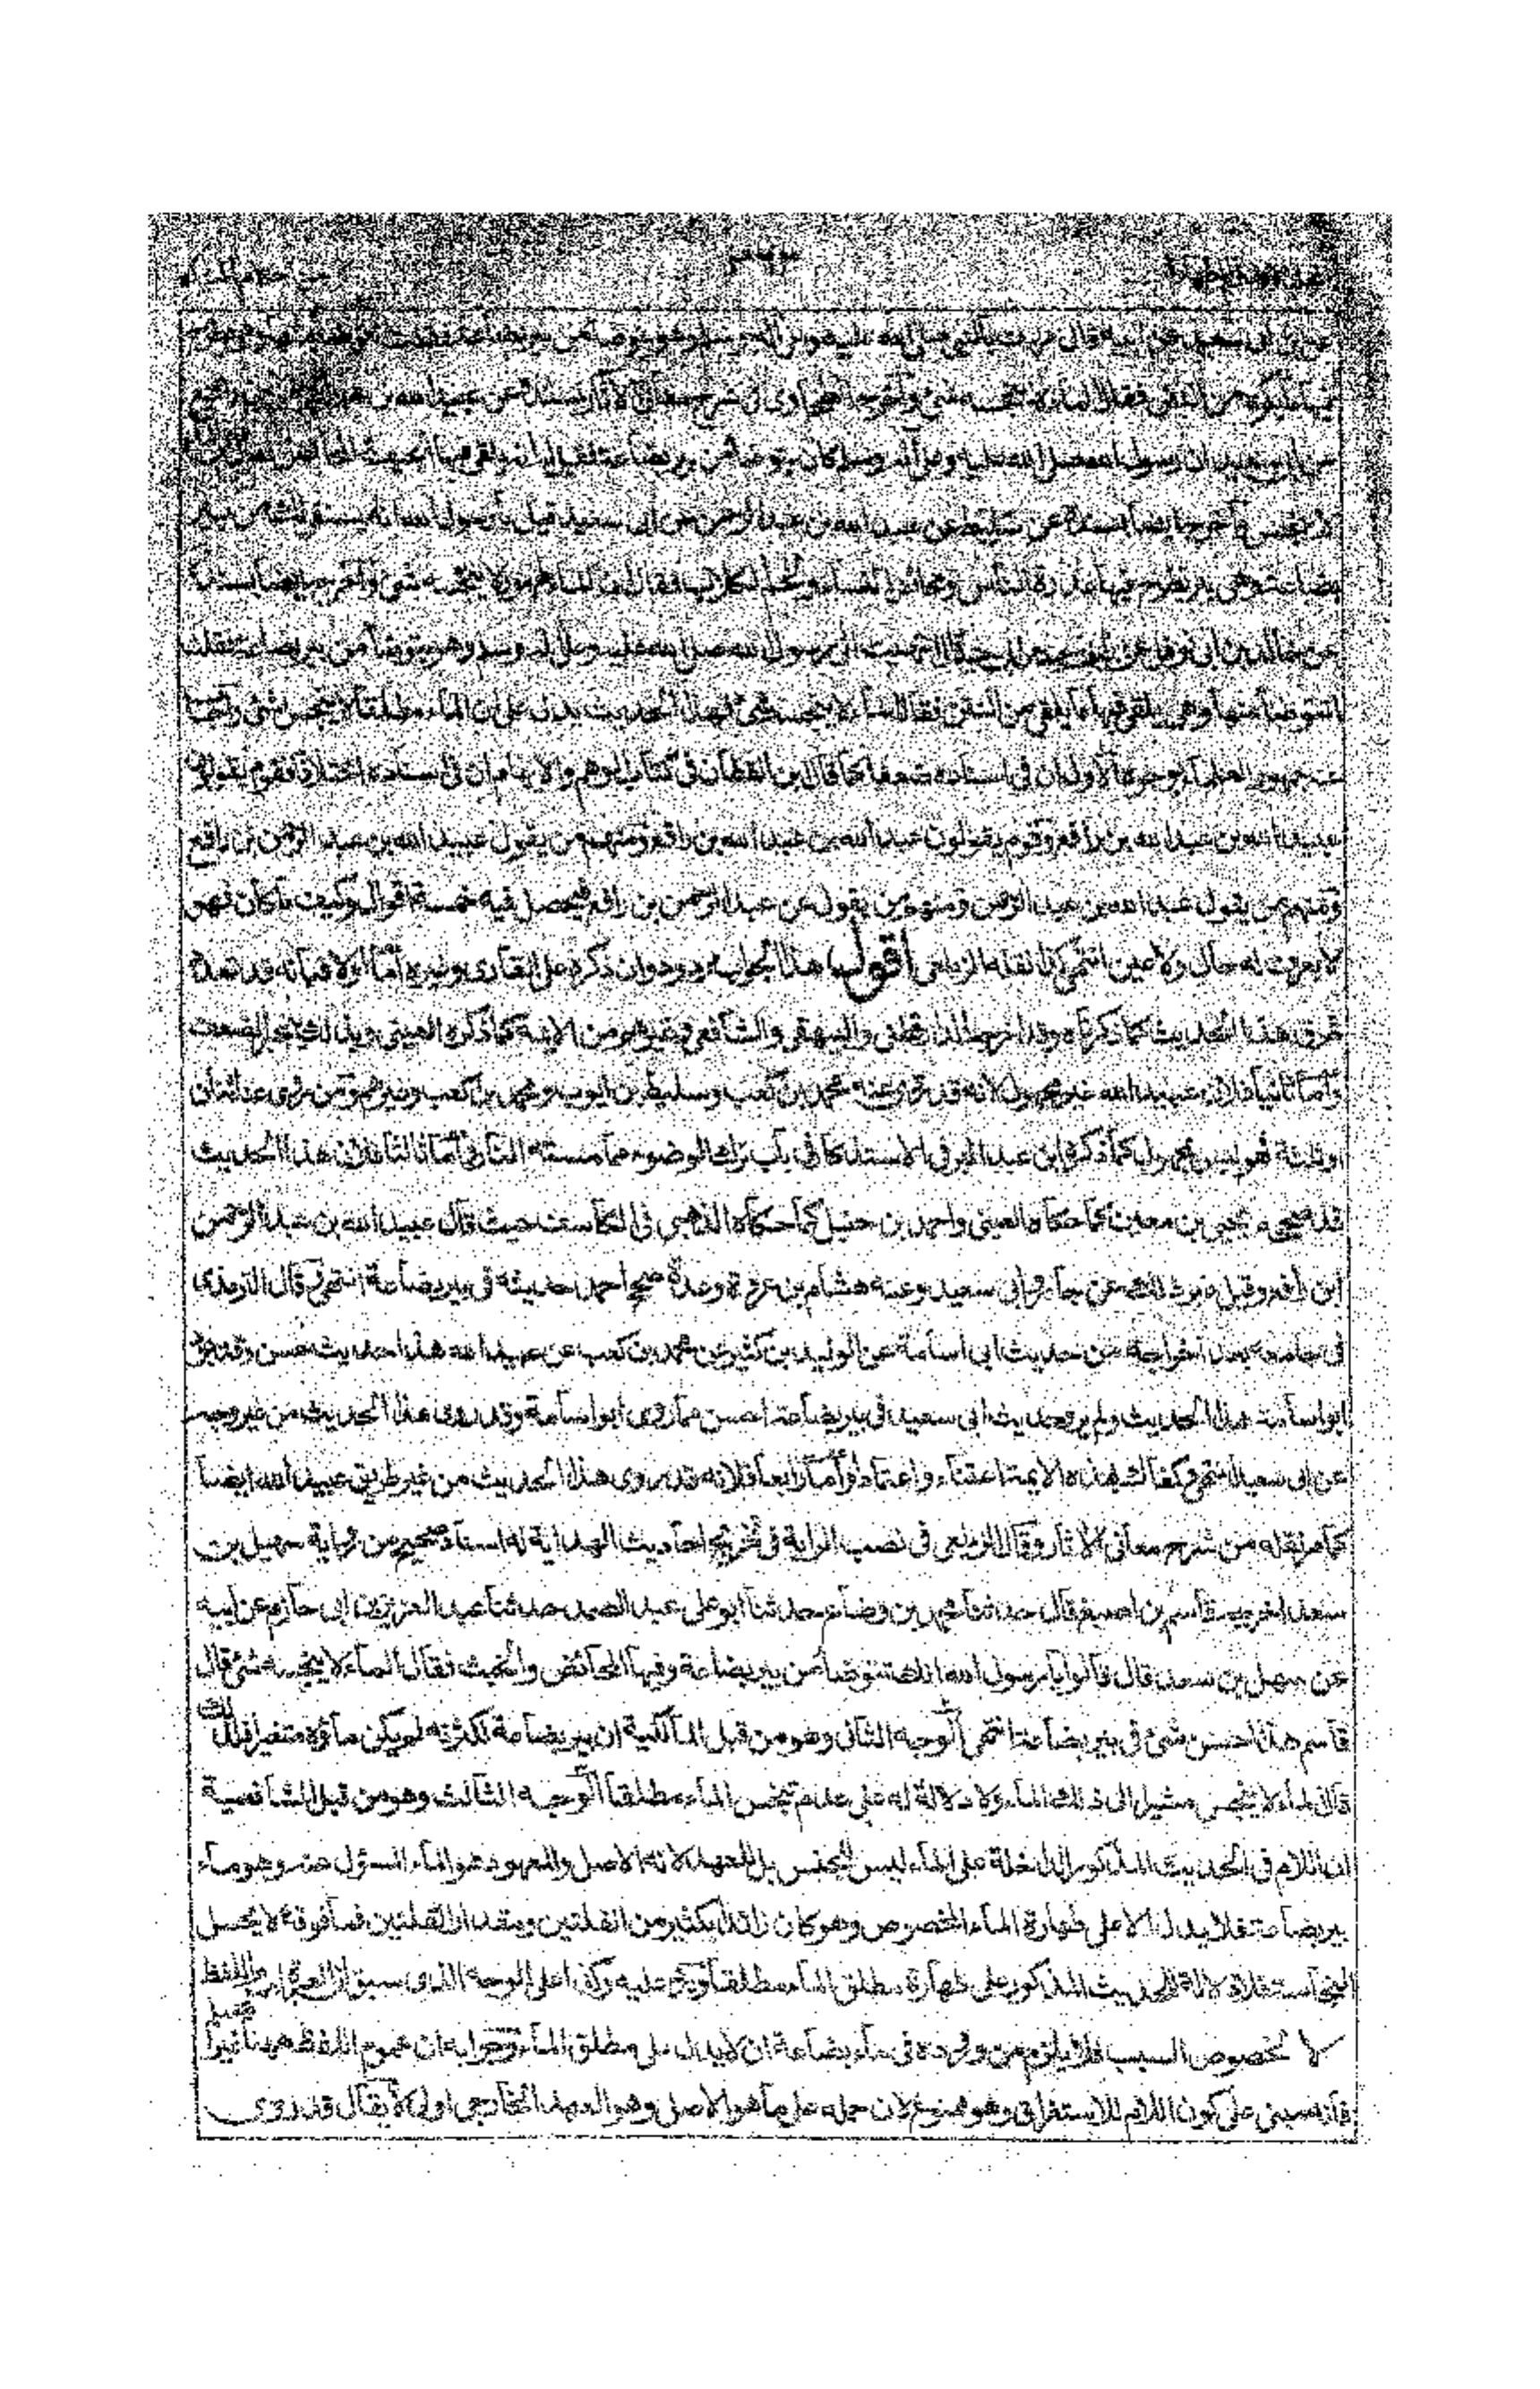 عن ابن ابى سعيد عن ابيه قال مررت بالنبي صلى الله عليه وعلى اله وسلم وهو يتوضأ من بير بضاعة فقلت
فيها ما يكره من النتن فقال الماء لا ينجسه شئ وأخرج الطحاوى فى شرح معانى الآثار بسنده عن عبيد الله بن
ان رسول الله صلى الله عليه وعلى اله وسلم كان يتوضأ من بير بضاعة فقيل انه يلقى فيها الجيف والمحائض فقال ان
لا ينجس وأخرج ايضا بسنده عن سليط عن عبيد الله بن عبد الرحمن عن ابى سعيد قيل يا رسول الله انه يستقى لك من بير
بضاعة وهى بير يطرح فيها عذرة الناس ومحائض النساء ولحم الكلاب فقال ان الماء طهور لا ينجسه شئ وأخرج ايضا بسنده
عن خالد بن ابى نوف عن ابن ابى سعيد قال انتهيت الى رسول الله صلى الله عليه وعلى اله وسلم وهو يتوضأ من بير بضاعة فقلت
اتتوضأ منها وهى يلقى فيها ما يلقى من النتن فقال الماء لا ينجسه شئ فهذا الحديث يدل على ان الماء مطلقا لا يتنجس بشئ
عنه جمهور العلماء بوجوه الاول ان فى اسناده ضعفا كما قال ابن القطان فى كتاب الوهم والايهام ان فى اسناده اختلافا فقوم يقولون
عبيد الله بن عبد الله بن رافع وقوم يقولون عبد الله بن عبد الله بن رافع ومنهم من يقول عبيد الله بن عبد الرحمن بن رافع
ومنهم من يقول عبد الله بن عبد الرحمن ومنهم من يقول عن عبد الرحمن بن رافع فيحصل فيه خمسة اقوال وكيف ما كان فهو
لا يعرف له حال ولا عين انتهى كذا نقله الزيلعى اقول هذا الجواب مردود وان ذكره على القارى وغيره أما اولا فبانه قد تعدد
طرق هذا الحديث كما ذكرناه وقد اخرجه الدارقطنى والبيهقى والشافعى وغيرهم من الائمة كما ذكره العينى وبذلك ينجبر الضعف
وأما ثانيا فلان عبيد الله غير مجهول لانه قد روى عنه محمد بن كعب وسليط بن ايوب وغيرهم ومن روى عنه اثنان
او ثلثة فهو ليس بمجهول كما ذكره ابن عبد البر فى الاستذكار فى باب ترك الوضوء مما مسته النار وأما ثالثا فلان هذا الحديث
قد صححه يحيى بن معين كما حكاه العينى واحمد بن حنبل كما حكاه الذهبى فى الكاشف حيث قال عبيد الله بن عبد الرحمن
ابن رافع وقيل عن جابر وابى سعيد وعنه هشام بن عروة وعدة صحح احمد حديثه فى بير بضاعة انتهى وقال الترمذى
فى جامعه بعد اخراجه من حديث ابى اسامة عن الوليد بن كثير عن محمد بن كعب عن عبيد الله هذا حديث حسن وقد جود
ابو اسامة هذا الحديث ولم يرو حديث ابى سعيد فى بير بضاعة احسن مما روى ابو اسامة وقد روى هذا الحديث من غير وجه
عن ابى سعيد انتهى وكفاك بهذه الائمة اعتناء واعتمادا وأما رابعا فلانه قد روى هذا الحديث من غير طريق عبيد الله ايضا
كما مر نقله من شرح معانى الآثار وقال الزيلعى فى نصب الراية فى تخريج احاديث الهداية له اسناد صحيح من رواية سهل بن
سعد اخرجه قاسم بن اصبغ قال حدثنا محمد بن وضاح حدثنا ابو على عبد الصمد حدثنا عبد العزيز بن ابى حازم عن ابيه
عن سهل بن سعد قال قالوا يا رسول الله انك تتوضأ من بير بضاعة وفيها المحائض والخبث فقال الماء لا ينجسه شئ قال
قاسم هذا احسن شئ فى بير بضاعة انتهى الوجه الثانى وهو من قبل المالكية ان بير بضاعة لكثرته لم يكن ماؤه متغيرا فلذلك
قال الماء لا ينجس مشيرا الى ذلك الماء ولا دلالة له على عدم تنجس الماء مطلقا الوجه الثالث وهو من قبل الشافعية
ان اللام فى الحديث المذكور الداخلة على الماء ليس للجنس بل للعهد لانه الاصل والمعهود هو الماء المسؤل عنه وهو ماء
بير بضاعة فلا يدل الا على طهارة الماء المخصوص وهو كان زائدا بكثير من القلتين ومقدار القلتين فما فوقه لا يحمل
النجاسة فلا دلالة للحديث المذكور على طهارة مطلق الماء مطلقا ويرد عليه وكذا على الوجه الذى سبق ان العبرة لعموم اللفظ
لا لخصوص السبب فلا يلزم من وروده فى ماء بضاعة ان لا يدل على مطلق الماء وجوابه ان عموم اللفظ ههنا غير مقبول
فانه مبنى على كون اللام للاستغراق وهو ممنوع لان حمله على ما هو الاصل وهو العهد الخارجى اولى لا يقال قد روى